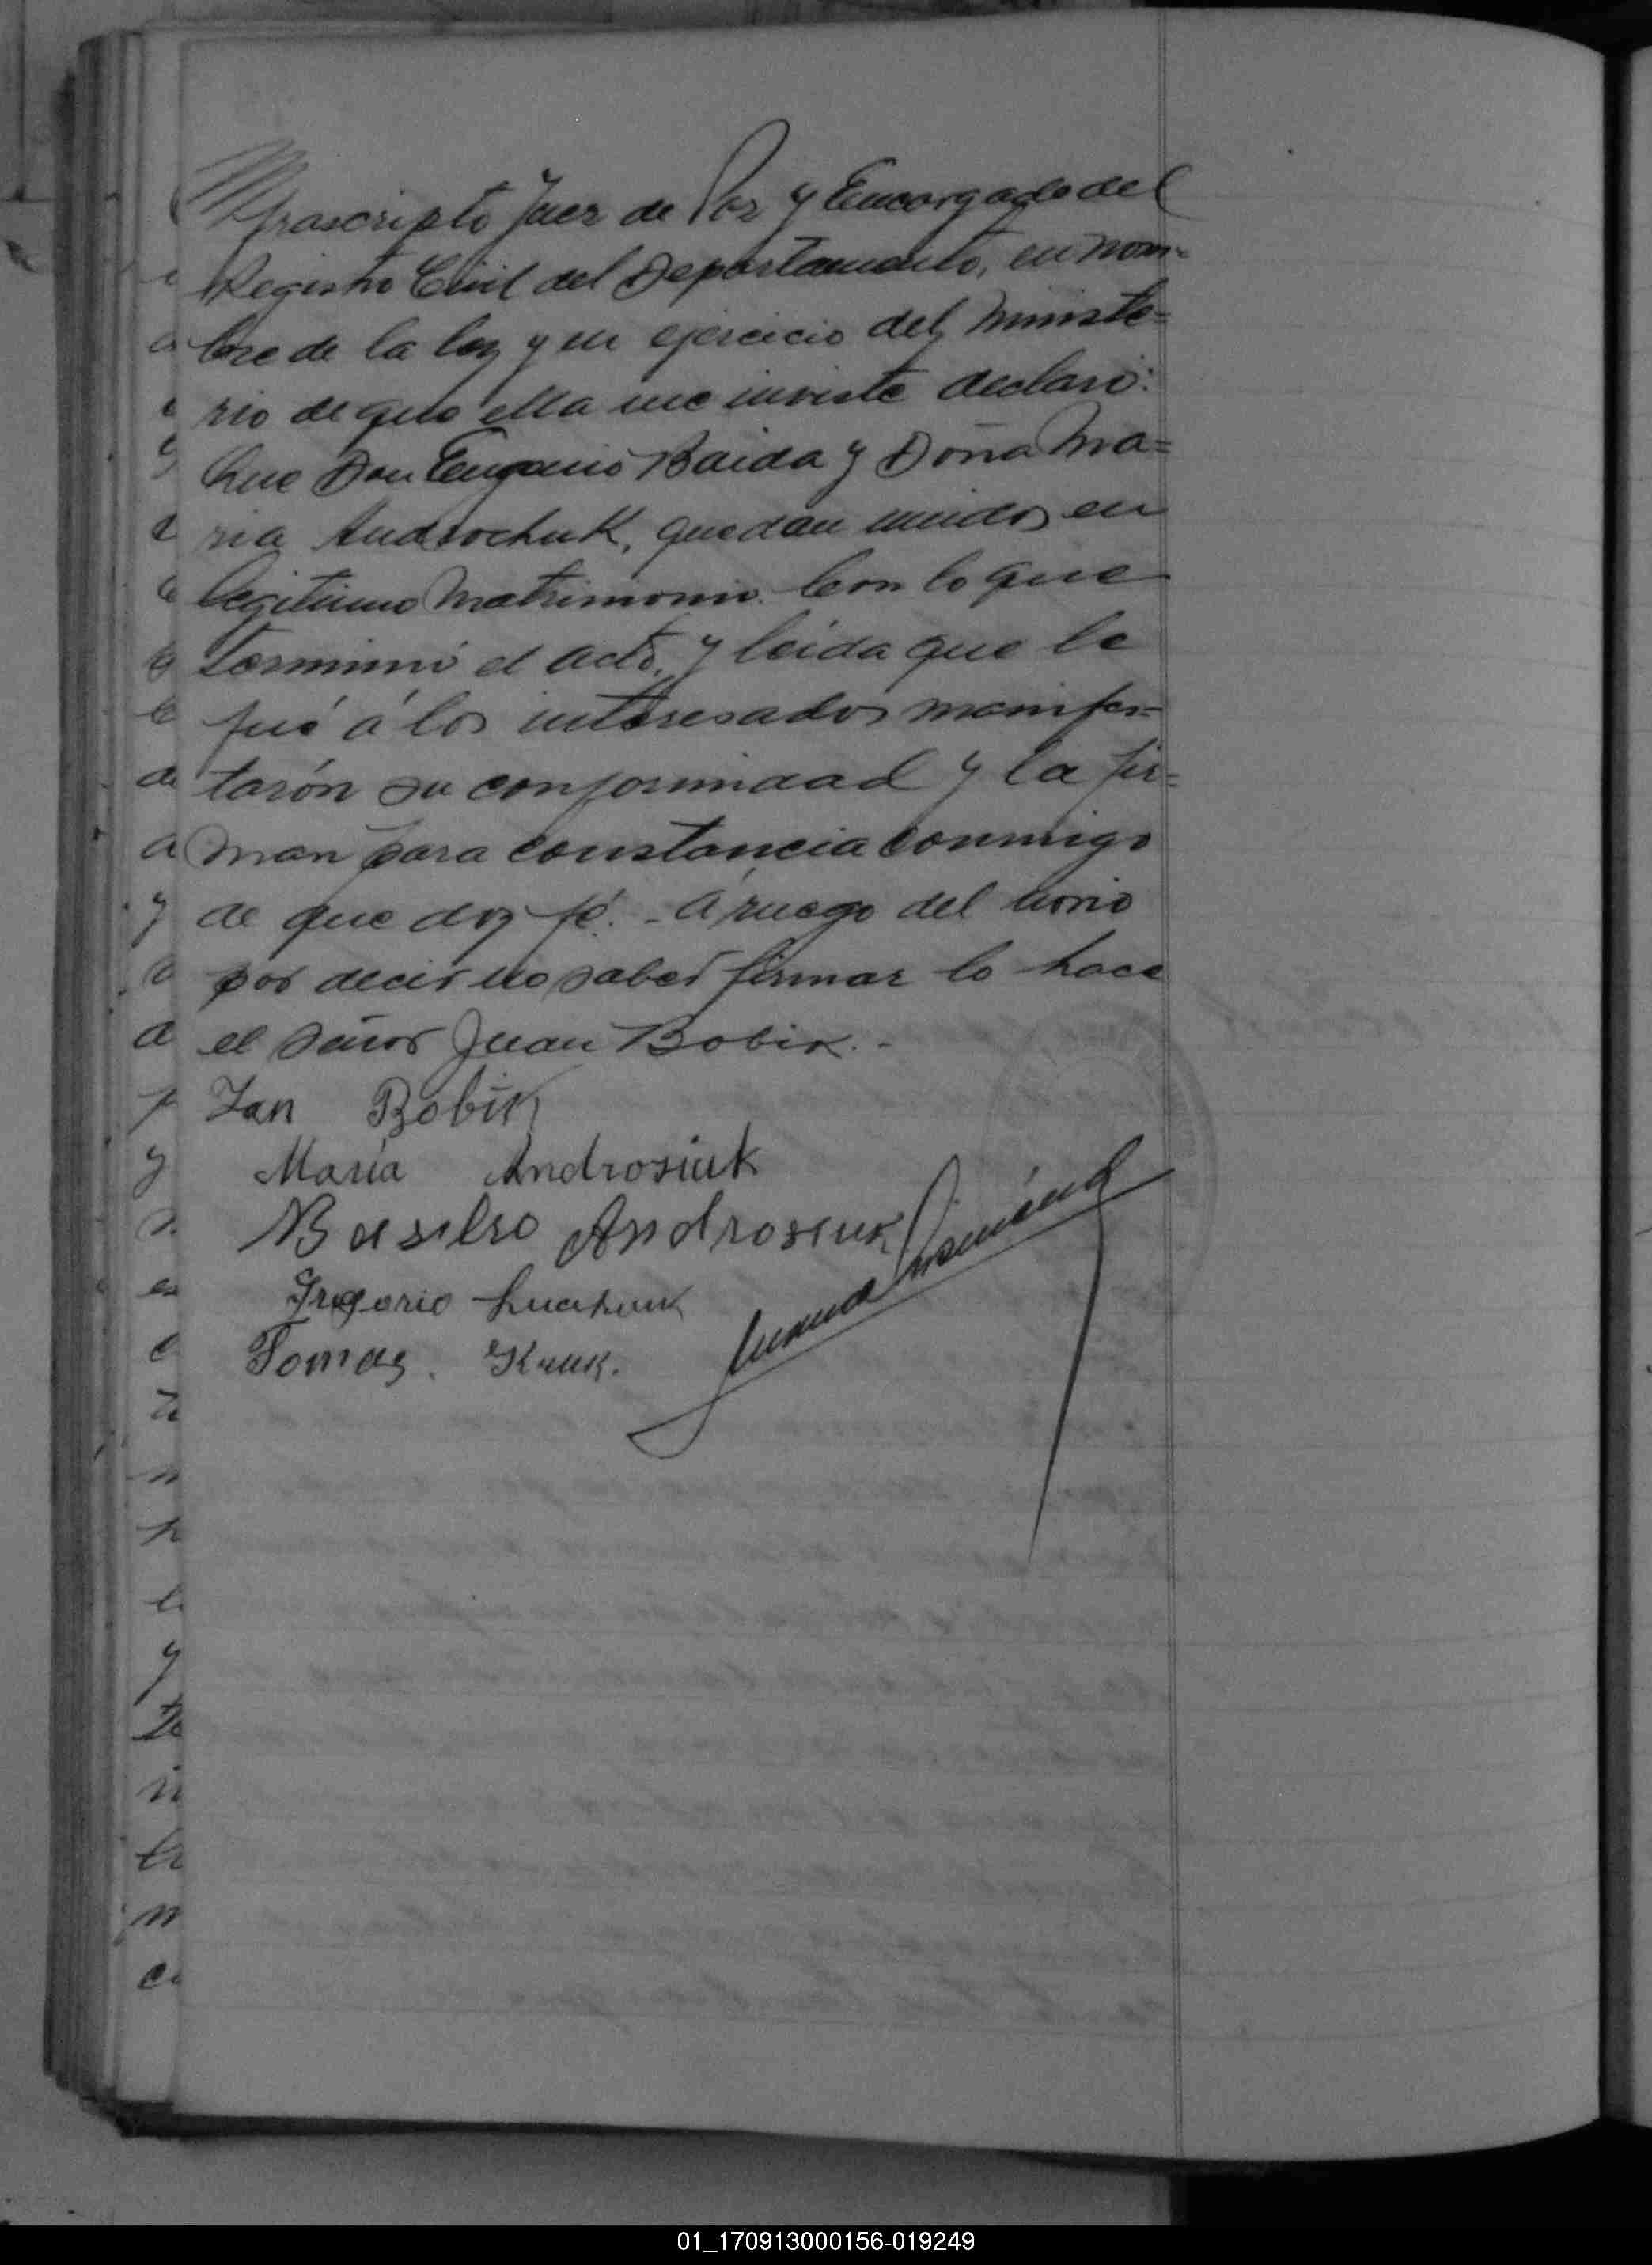 frascripto Juez de Paz y Encargado del
Registro Civil del Departamento, en nom-
bre de la ley y en ejercicio del ministe=
rio de que ella me inviste declaro:
Que Don Eugenio Baida y Doña Ma=
ria Androchuk, quedan unidos en
legitimo Matrimonio. Con lo que
terminó el acto, y leida que le
fué á los interesados manifes=
tarón su conformidad y la fir=
man para constancia conmigo
de que doy fé. - A ruego del novio
por decir no saber firmar lo hace
el señor Juan Bobik. -
Jan Bobik
Maria Androsiuk
Basilio Androsiuk
Gregorio
Tomas. Kruk.
01_170913000156-019249